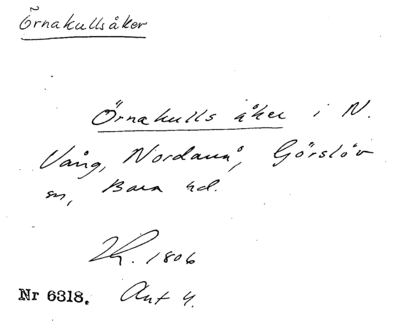 Örnakullsåker
Örnakulls åker i N.
Vång, Nordanå, Görslöv
sn, Bara hd.
1806
Nr 6318. Akt 4.